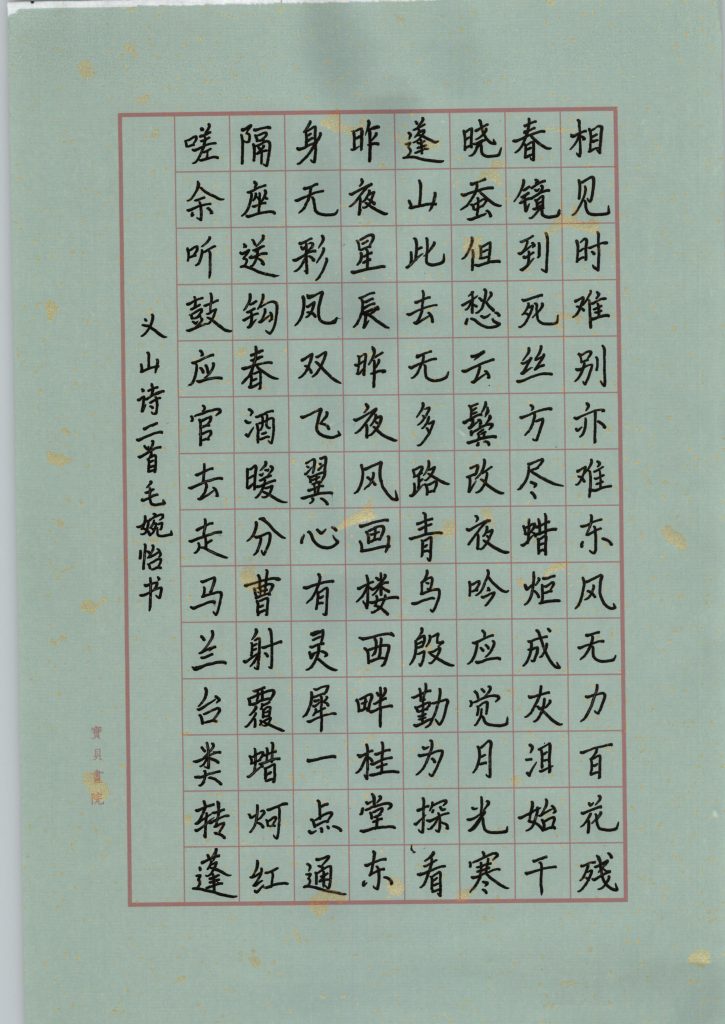 相见时难别亦难东风无力百花残
春镜到死丝方尽蜡炬成灰泪始干
晓蚕但愁云鬓改夜吟应觉月光寒
蓬山此去无多路青鸟殷勤为探看
昨夜星辰昨夜风画楼西畔桂堂东
身无彩凤双飞翼心有灵犀一点通
隔座送钩春酒暖分曹射覆蜡炣红
嗟余听鼓应官去走马兰台类转蓬
义山诗二首毛婉怡书
寶貝畫院